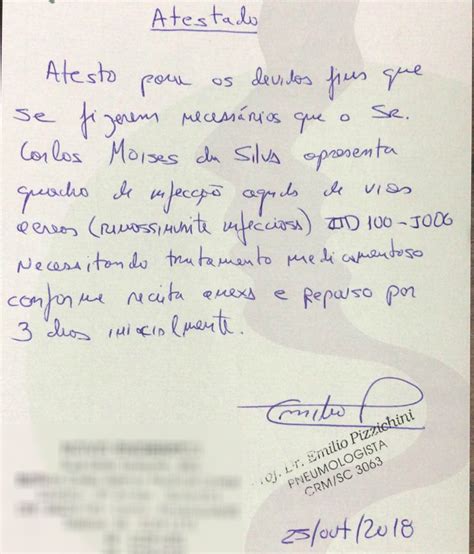 Atestado
Atesto para os devidos fins que
se fizerem necessários que o Sr.
Carlos Moises da Silva apresenta
quadro de infecção aguda de vias
aereas (rinossinusite infecciosa) JD 100-J006
Necessitando tratamento medicamentoso
conforme receita anexa e Repouso por
3 dias inicialmente.
Emilio P
Prof. Dr. Emilio Pizzichini
PNEUMOLOGISTA
CRM/SC 3063
25/out/2018